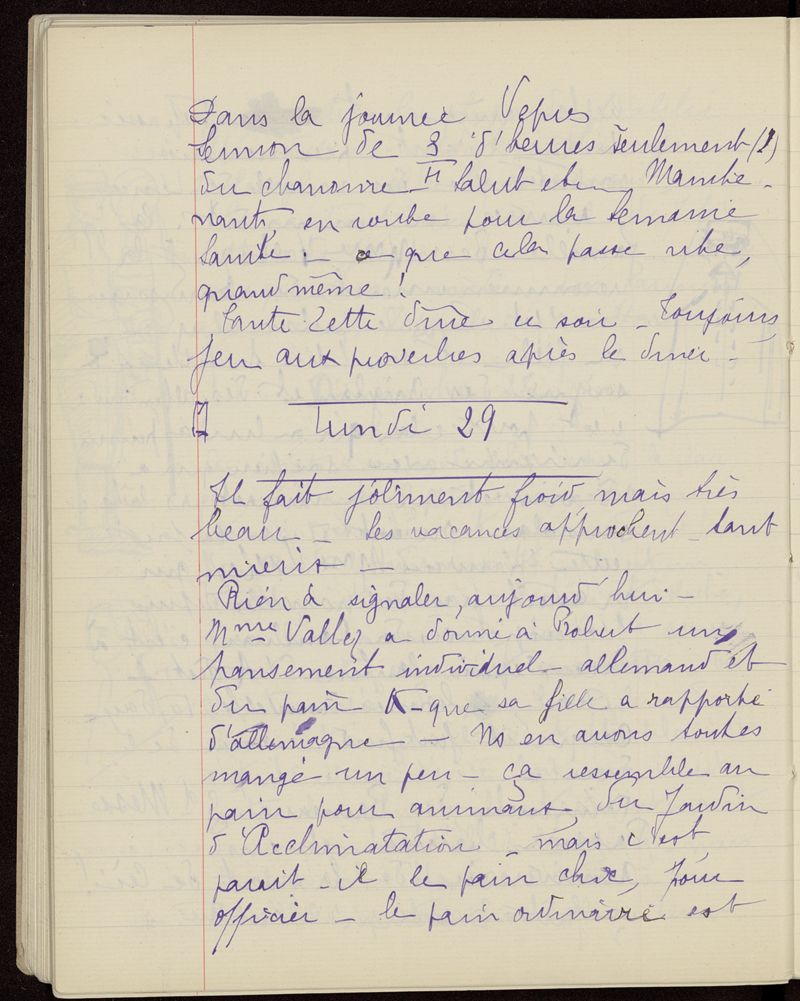 Dans la journée Vêpres
Sermon de 3/4 d'heures seulement (!)
du chanoine - Salut etc - Mainte-
nant, en route pour la Semaine
Sainte. - ce que cela passe vite,
quand même !
Tante Zette dîne ce soir - Toujours
jeu aux proverbes après le diner -
Lundi 29
Il fait joliment froid, mais très
beau - Les vacances approchent - tant
mieux -
Rien à signaler, aujourd'hui -
Mme Vallez a donné à Robert un
pansement individuel allemand et
du pain K - que sa fille a rapporté
d'allemagne - Ns en avons toutes
mangé un peu - ça ressemble au
pain pour animaux, du Jardin
d'Acclimatation - mais c'est
parait-il le pain chic, pour
officier - le pain ordinaire est